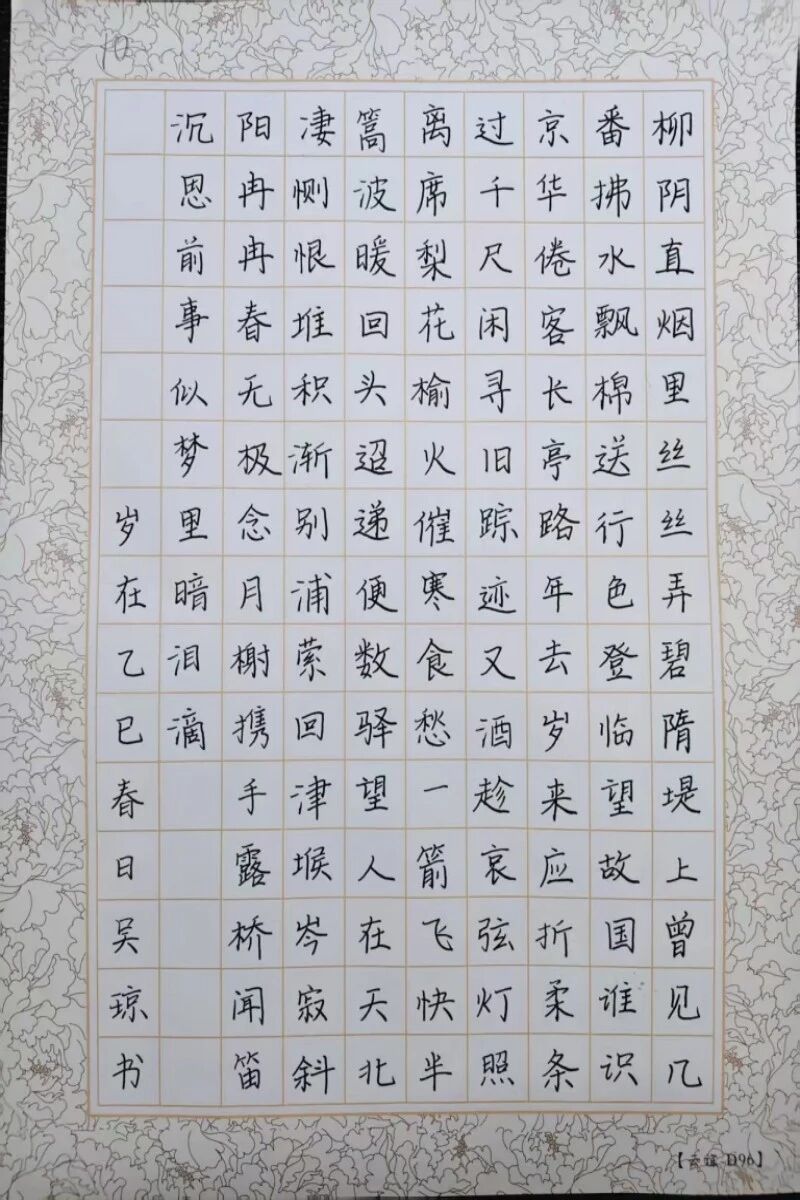 10
柳阴直烟里丝丝弄碧隋堤上曾见几
番拂水飘棉送行色登临望故国谁识
京华倦客长亭路年去岁来应折柔条
过千尺闲寻旧踪迹又酒趁哀弦灯照
离席梨花榆火催寒食愁一箭飞快半
篙波暖回头迢递便数驿望人在天北
凄恻恨堆积渐别浦萦回津堠岑寂斜
阳冉冉春无极念月榭携手露桥闻笛
沉思前事似梦里暗泪滴
岁在乙巳春日吴琼书
D96】